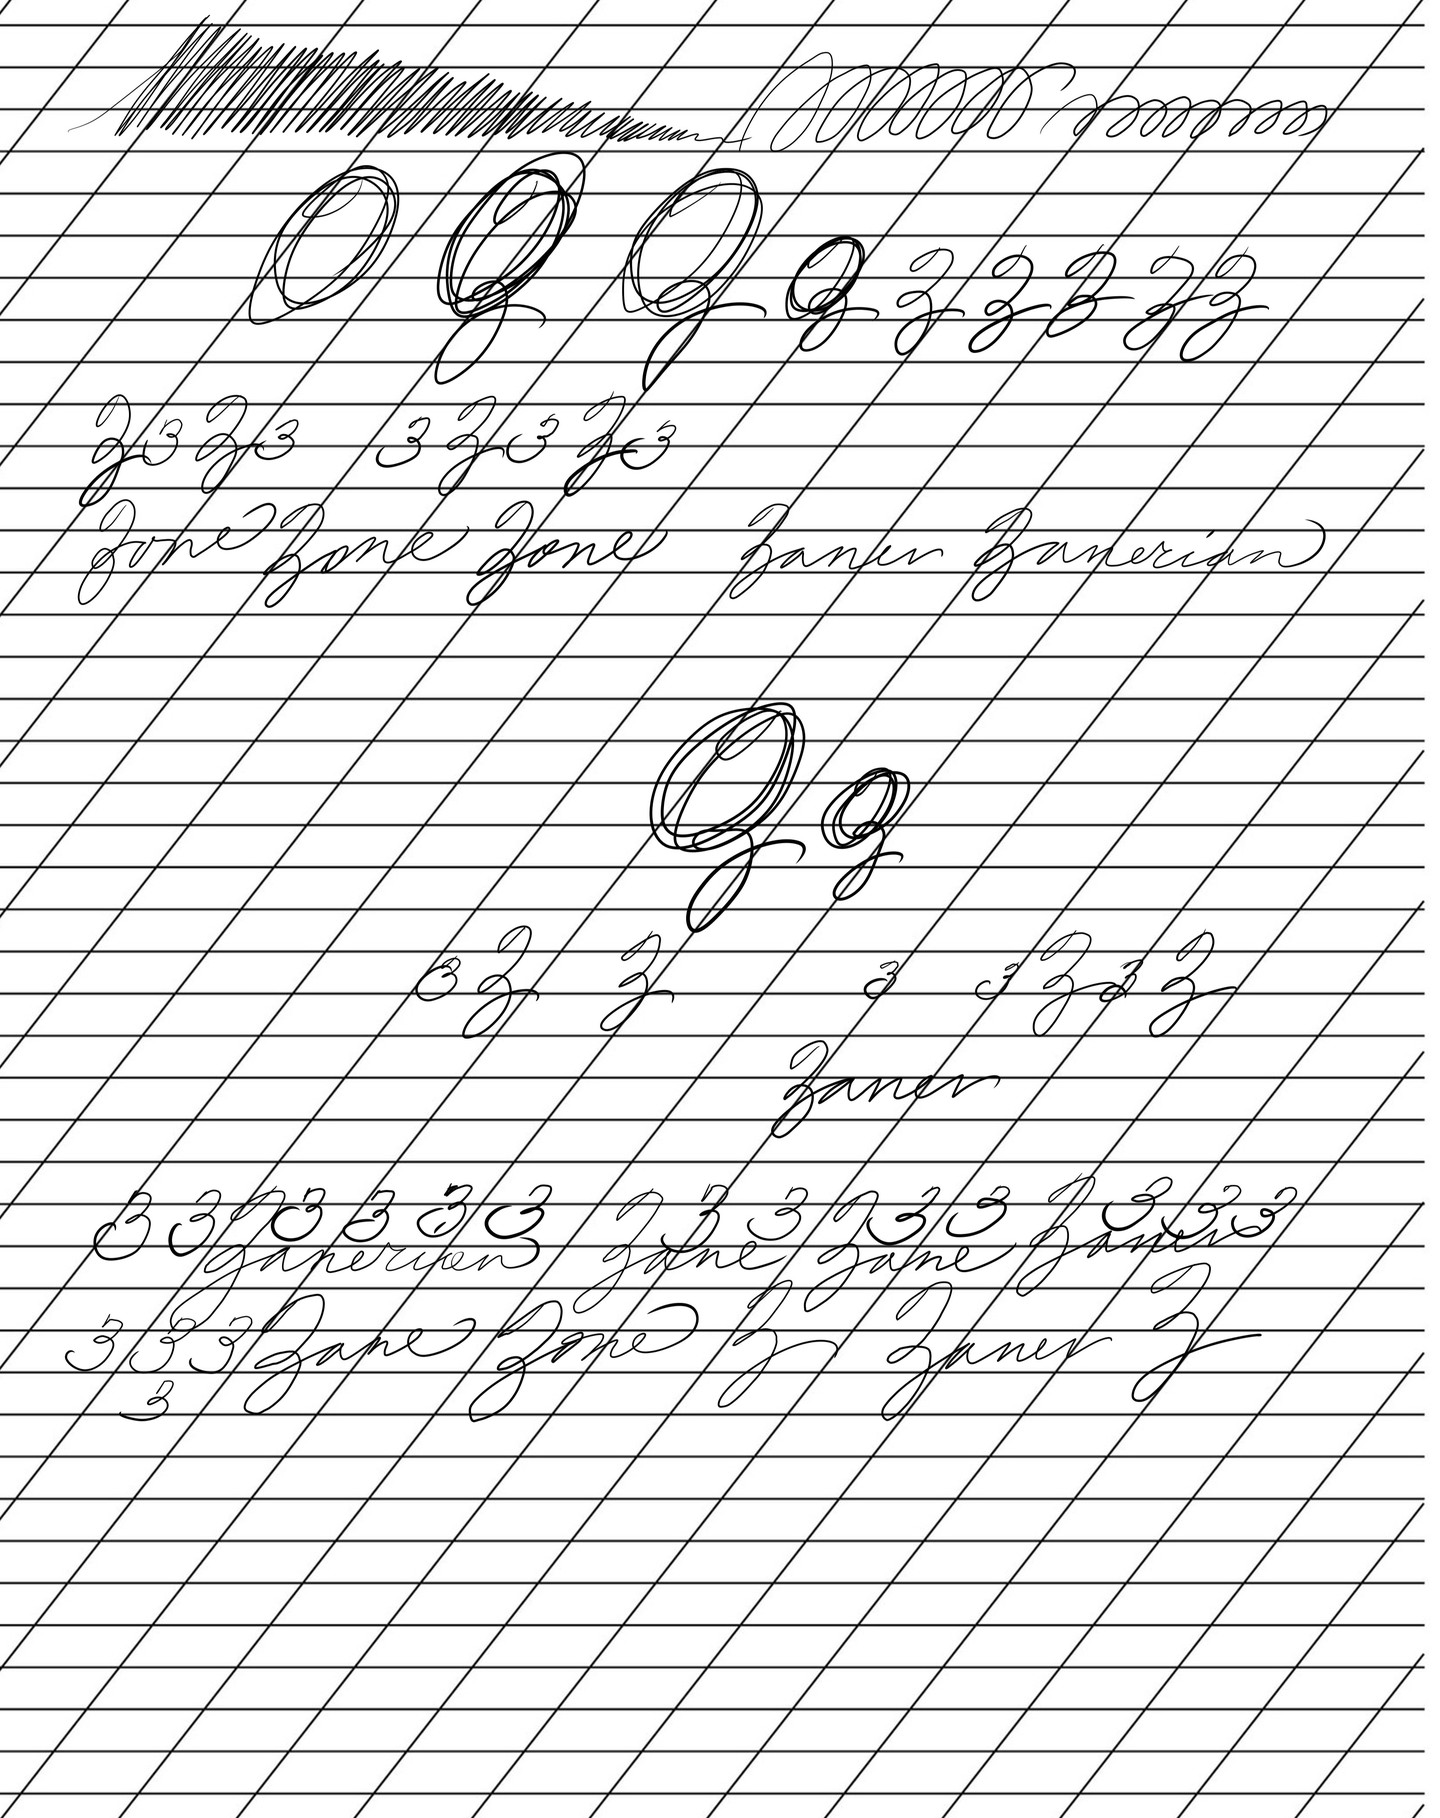 Z Z Z Z Z Z Z Z
Z 3 Z 3 3 Z 3 Z 3
Zone Zone Zone Zaner Zanerian
Z Z
3 Z Z 3 3 Z 3 Z
Zaner
3 3 3 3 3 3 3 3 3 3 3 3 3
Zanerian Zane Zane Zaner
3 3 3 Zane Zone Z Zaner Z
3